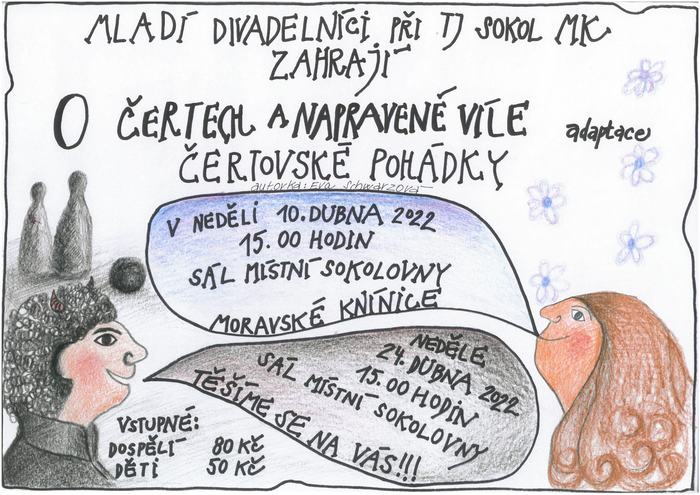 MLADÍ DIVADELNÍCI PŘI TJ SOKOL MK
ZAHRAJÍ
O ČERTECH A NAPRAVENÉ VÍLE
adaptace
ČERTOVSKÉ POHÁDKY
autorka: Eva Schwarzová
V NEDĚLI 10. DUBNA 2022
15.00 HODIN
SÁL MÍSTNÍ SOKOLOVNY
MORAVSKÉ KNÍNICE
NEDĚLE
24. DUBNA 2022
15.00 HODIN
SÁL MÍSTNÍ SOKOLOVNY
TĚŠÍME SE NA VÁS!!!
VSTUPNÉ:
DOSPĚLÍ 80 KČ
DĚTI 50 KČ